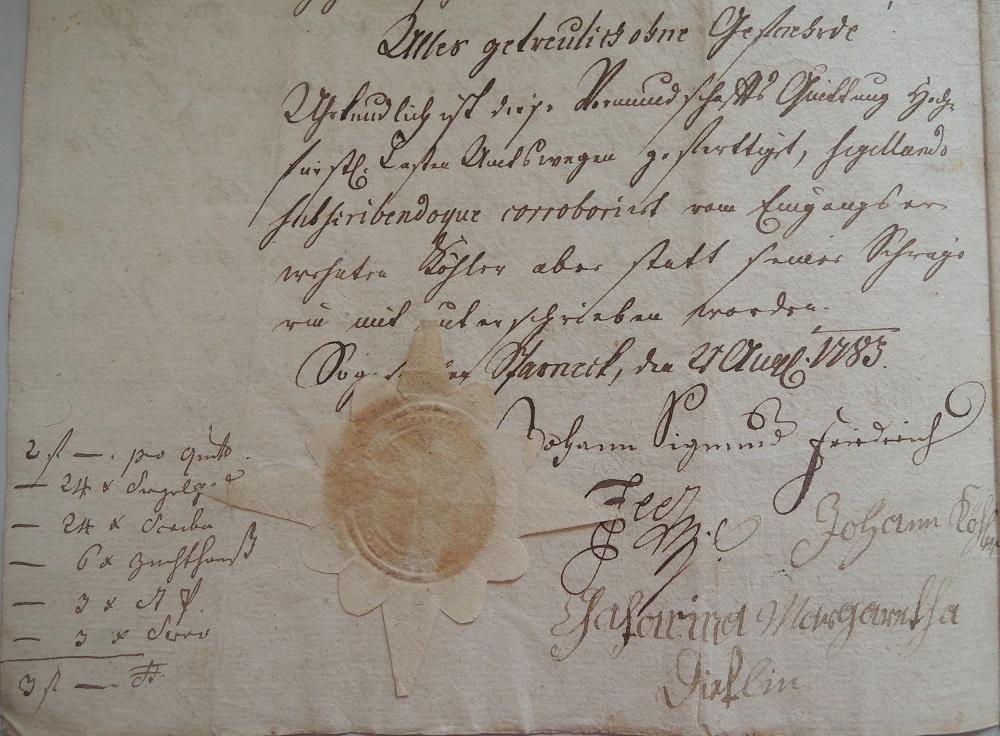 Alles getreulich ohne Gefaehrde
Uhrkundlich ist diese Vormundschaffts Quittung Hoch
fürstl. Casten Amts wegen gefferttiget, sigillando
subscribendoque corroboriret vom Eingangs er
wehnten Köhler aber statt seiner Schwige
rin mit unterschrieben worden.
Sparneck, den 21 Aug. 1783.
Johann Sigmund Friedrich
Johann Köhler
Catarina Margaretha
Dietlin
2 fl — . pro quitt.
— 24 x
— 24 x
— 6 x Zuchthauß
— 3 x
— 3 x
3 fl —